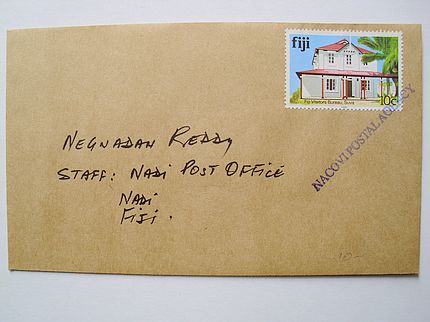 fiji
Fiji Visitors Bureau, Suva
10c
NACOVI POSTAL AGENCY
NEGNADAN REDDY
STAFF: NADI POST OFFICE
NADI
FIJI.
10-